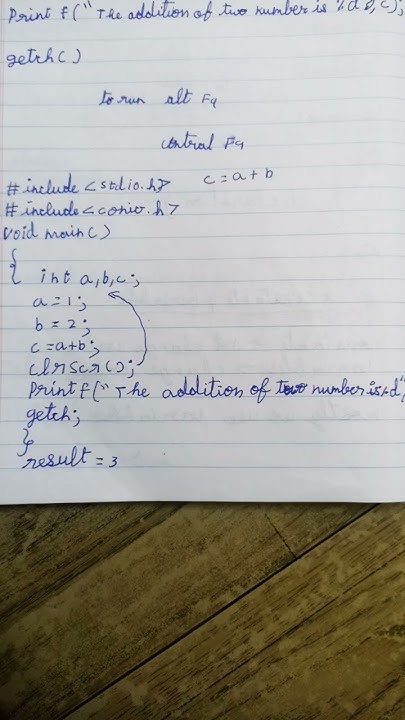 Print f("The addition of two number is %d",c);
getch()
to run alt F9
control F9
c=a+b
#include<stdio.h>
#include<conio.h>
void main()
{
int a,b,c;
a=1;
b=2;
c=a+b;
clrscr();
Printf("The addition of two number is%d"
getch;
}
result=3